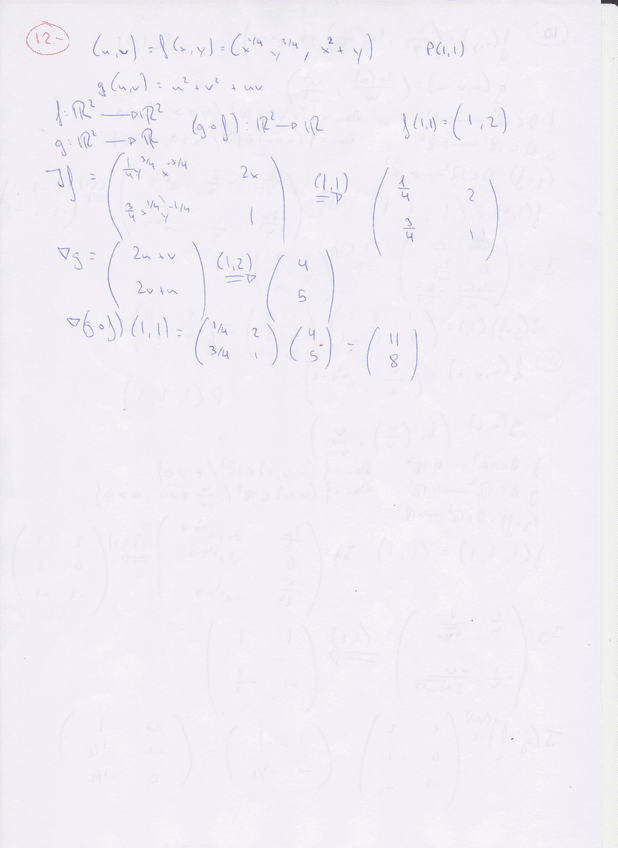 12.-
(u,v) = f(x,y) = (x^{1/4} y^{3/4}, x² + y) P(1,1)
g(u,v) = u² + v² + uv
f: ℝ² → ℝ²
g: ℝ² → ℝ (g∘f): ℝ² → ℝ f(1,1) = (1,2)
Jf = ( 1/4 y^{3/4} x^{-3/4} 2x ) (1,1) ⇒ ( 1/4 2 )
( 3/4 x^{1/4} y^{-1/4} 1 ) ( 3/4 1 )
∇g = ( 2u+v ) (1,2) ⇒ ( 4 )
( 2v+u ) ( 5 )
∇(g∘f)(1,1) = ( 1/4 2 ) ( 4 ) = ( 11 )
( 3/4 1 ) ( 5 ) ( 8 )